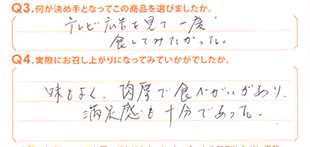 Q3.何が決め手となってこの商品を選びましたか。
テレビ広告を見て一度
食してみたかった。
Q4.実際にお召し上がりになってみていかがでしたか。
味もよく、肉厚で食べがいがあり、
満足感も十分であった。